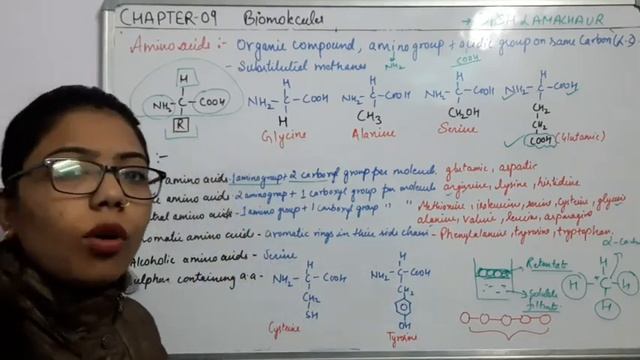 CHAPTER-09 Biomolecules
Amino acids :- Organic compound, amino group + acidic group on same Carbon (α-c)
NH₂ COOH
- Substituted methanes
H
NH₂-C-COOH
R
H H H H
NH₂-C-COOH NH₂-C-COOH NH₂-C-COOH NH₂-C-COOH
H CH₃ CH₂OH CH₂
CH₂
COOH (Glutamic)
Glycine Alanine Serine
amino acids - 1 amino group + 2 carboxyl group per molecule. glutamic, aspatic
amino acids - 2 amino group + 1 carboxyl group per molecule arginine, lysine, histidine
amino acids - 1 amino group + 1 carboxyl group " " Methionine, isoleucine, serine, cysteine, glycine
alanine, valine, leucine, asparagine
amino acids - aromatic rings in their side chain - Phenylalanine, tyrosine, tryptophan.
Alcoholic amino acids - Serine
Sulphur containing a.a -
H H
NH₂-C-COOH NH₂-C-COOH
CH₂ CH₂
SH OH
Cysteine Tyrosine
Retentate
filtrate
H C H
H